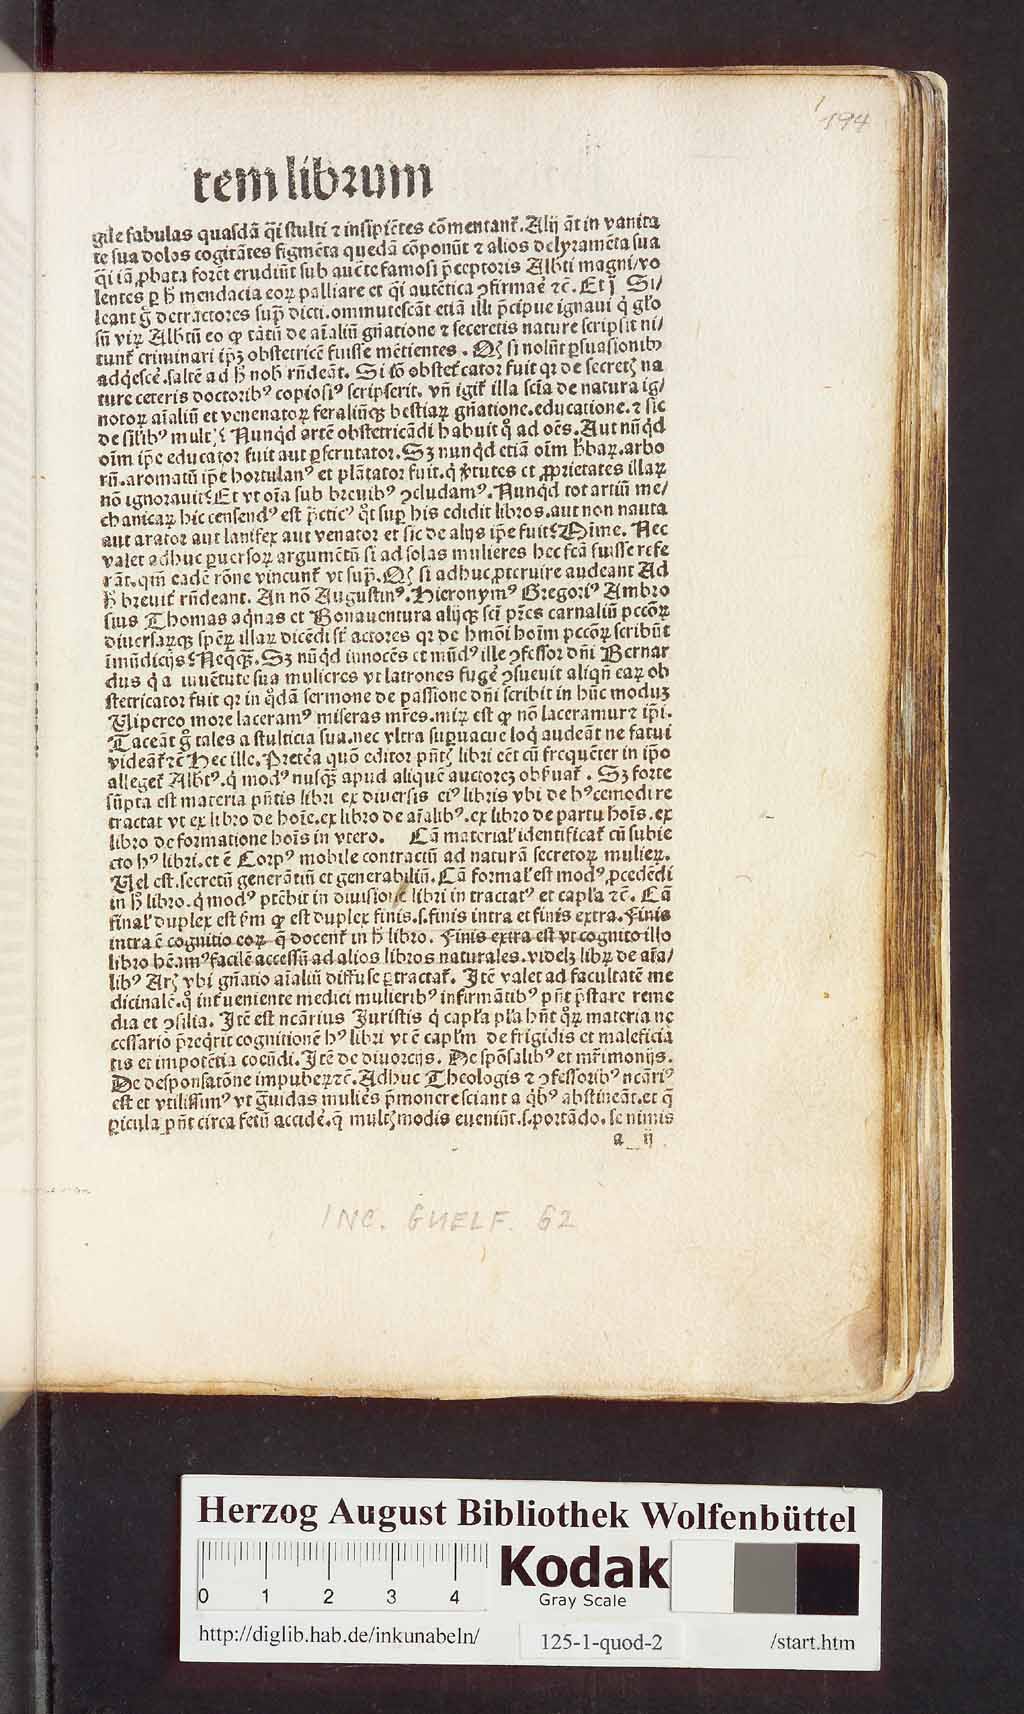 194
tem librum
gile fabulas quasdã q̃i stulti ⁊ insipiẽtes cõmentant̃. Alij ãt in vanita
te sua dolos cogitãtes figmẽta quedã cõponũt ⁊ alios delyramẽta sua
q̃i iã ꝓbata forẽt erudiũt sub auẽte famosi p̃ceptoris Alb̃ti magni/vo
lentes ꝑ h̃ mendacia eoꝝ palliare et q̃i autẽtica ꝯfirmaẻ ⁊c̃. Et Si/
leant g̃ detractores sup̃ dicti.ommutescãt etiã illi p̃cipue ignaui
sũ viꝝ Alb̃tũ eo ꝙ tãtũ de aĩaliũ gñatione ⁊ seceretis nature scripsit ni/
tunt̃ criminari ip̃ꝫ obstetricẽ fuisse mẽtientes. si nolũt ꝑsuasionibꝰ
adq̇esceẻ.saltẽ ad h̃ nob̃ rñdeãt. Si obstet̃cator fuit qꝛ de secret̃ na
ture ceteris doctoribꝰ copiosiꝰ scripserit. vñ igit̃ illa sciã de natura ig/
notoꝝ aĩaliũ et venenatoꝝ feraliũqꝫ bestiaꝝ gñatione.educatione.⁊ sic
de silibꝰ Nunq̇d artẽ obstetricãdi habuit q̊ ad oẽs. Aut nũq̇d
oĩm ip̃e educator fuit aut ꝑscrutator. Sꝫ nunq̇d etiã oĩm h̃baꝝ.arbo
rũ.aromatũ ip̃e hortulanꝰ et plãtator fuit.q̇ ṽtutes et ꝓprietates illaꝝ
nõ ignorauit? Et vt oĩa sub breuibꝰ ꝯcludamꝰ. Nunq̇d tot artiũ me/
chanicaꝝ hic censendꝰ est p̃cticꝰ q̊t sup̃ his edidit libros.aut non nauta
aut arator aut lanifex aut venator et sic de alijs ip̃e fuit? Mĩme. Nec
valet adhuc ꝑuersoꝝ argumẽtũ si ad solas mulieres hec fcã fuisse refe
rãt.qm̃ eadẽ rõne vincunt̃ vt sup̃. si adhuc ꝓteruire audeant Ad
h̃ breuit̃ rñdeant. An nõ Augustinꝰ. Hieronymꝰ Gregoriꝰ Ambro
sius Thomas aq̇nas et Bonauentura alijqꝫ scĩ p̃res carnaliũ pccõꝝ
diuersaꝝqꝫ spẽꝝ illaꝝ dicẽdi sĩt actores qꝛ de hmõi hoĩm pccõꝝ scribũt
ĩmũdicijs? Neq̃qꝫ. Sꝫ nũq̇d innocẽs et mũdꝰ ille ꝯfessor dñi Bernar
dus q̇ a iuuẽtute sua mulieres vt latrones fugẻ ꝯsueuit aliqñ eaꝝ ob
stetricator fuit qꝛ in q̊dã sermone de passione dñi scribit in hũc moduꝫ
Vipereo more laceramꝰ miseras mr̃es.miꝝ est ꝙ nõ laceramur⁊ ip̃i.
Taceãt g̊ tales a stulticia sua.nec vltra suꝑuacue loq̇ audeãt ne fatui
videãt̃⁊c̃ Hec ille. Pretẻa quõ editor pñt̃ libri eẽt cũ frequẽter in ip̃o
alleget̃ Alb̃tꝰ.q̇ modꝰ nusqꝫ̃ apud aliquẽ auctoreꝫ obs̃uat̃. Sꝫ forte
sũpta est materia pñtis libri ex diuersis eiꝰ libris vbi de hꝰcemodi re
tractat vt ex libro de hoĩe.ex libro de aĩalibꝰ.ex libro de partu hoĩs.ex
libro de formatione hoĩs in vtero. Cã materiaľ identificat̃ cũ subie
cto hꝰ libri.et ẽ Corpꝰ mobile contractũ ad naturã secretoꝝ mulieꝝ.
Vel est.secretũ generãtiũ et generabiliũ. Cã formaľ est modꝰ ꝓcedẽdi
in h̃ libro.q̇ modꝰ ptẽbit in diuisione libri in tractatꝰ et capľa ⁊c̃. Cã
finaľ duplex est ẽm ꝙ est duplex finis.s.finis intra et finis extra. Finis
intra ẽ cognitio eoꝝ q̃ docent̃ in h̃ libro. Finis extra est vt cognito illo
libro hẽamꝰ facilẽ accessũ ad alios libros naturales.videlꝫ libꝝ de aĩa/
libꝰ vbi gñatio aĩaliũ diffuse ꝑtractat̃. Itẽ valet ad facultatẽ me
dicinalẽ.q̊ int̃ueniente medici mulieribꝰ infirmãtibꝰ pñt p̃stare reme
dia et ꝯsilia. Itẽ est ncãrius Juristis q̇ capľa pľa hñt q̊ꝝ materia ne
cessario p̃reqⷦrit cognitionẽ hꝰ libri vt ẽ capľm de frigidis et maleficia
tis et impotẽtia coeũdi. Itẽ de diuorcijs. De spõsalibꝰ et mr̃imonijs.
De desponsatõne impubeꝝ⁊c̃. Adhuc Theologis ⁊ ꝯfessoribꝰ ncãriꝰ
est et vtilissimꝰ vt g̃uidas muliẻs p̃monere sciant a q̇bꝰ abstineãt.et q̃
ꝑicula pñt circa fetũ accideẻ.q̃ mult̃ modis eueniũt.s.portãdo.se nimis
a ij
INC. GUELF. 62
Herzog August Bibliothek Wolfenbüttel
0 1 2 3 4
Kodak
Gray Scale
http://diglib.hab.de/inkunabeln/ 125-1-quod-2 /start.htm